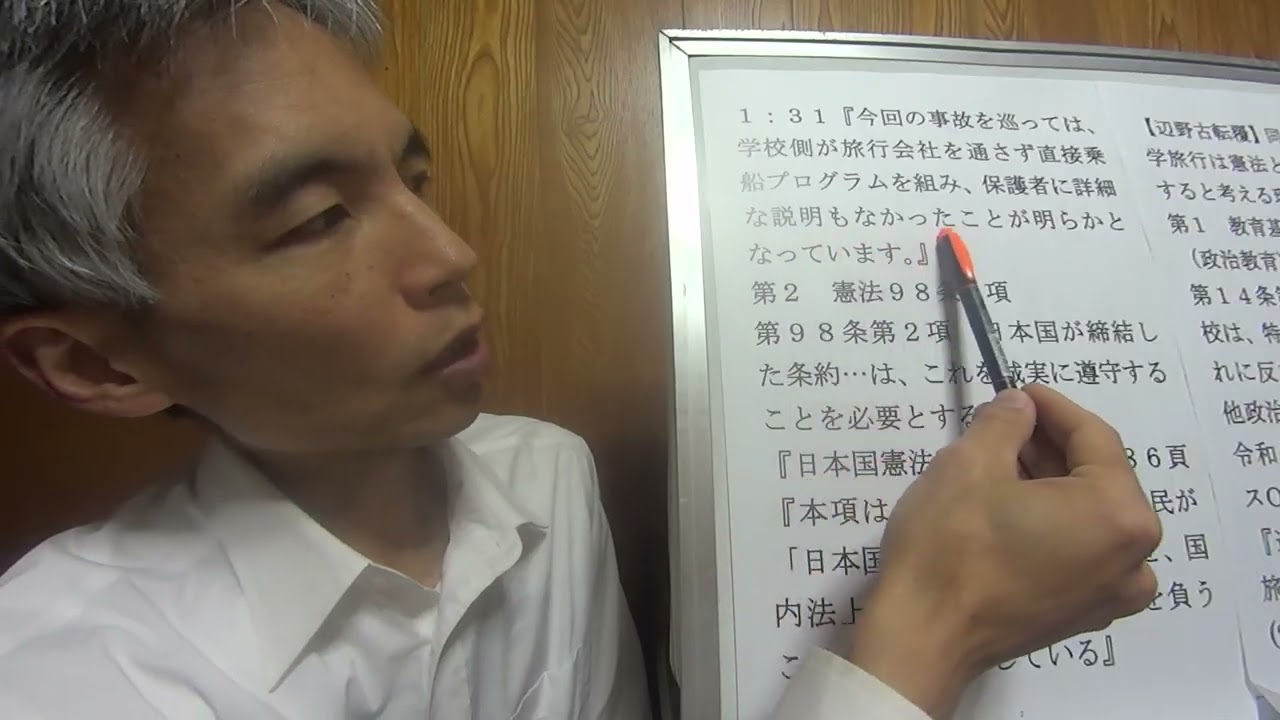 1：31『今回の事故を巡っては、
学校側が旅行会社を通さず直接乗
船プログラムを組み、保護者に詳細
な説明もなかったことが明らかと
なっています。』
第2　憲法98条 項
第98条第2項 日本国が締結し
た条約…は、これを誠実に遵守する
ことを必要とする
『日本国憲法 36頁
『本項は 民が
「日本国 、国
内法上 を負う
こ している』
【辺野古転覆】
学旅行は憲法と
すると考える
第1　教育基
(政治教育
第14条
校は、特
れに反
他政治
令和
スC
『
旅